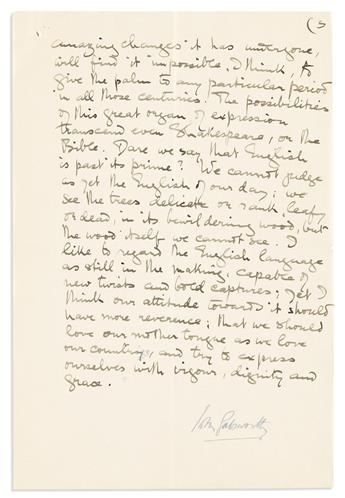 (3
amazing changes it has undergone,
will find it impossible, I think, to
give the palm to any particular period
in all those centuries. The possibilities
of this great organ of expression
transcend even Shakespeare, or the
Bible. Dare we say that English
is past its prime? We cannot judge
as yet the English of our day; we
see the trees delicate or rank, leafy
or dead, in its bewildering wood, but
the wood itself we cannot see. I
like to regard the English language
as still in the making, capable of
new twists and bold captures; yet I
think our attitude towards it should
have more reverence; that we should
love our mother tongue as we love
our country, and try to express
ourselves with vigour, dignity and
grace.
John Galsworthy